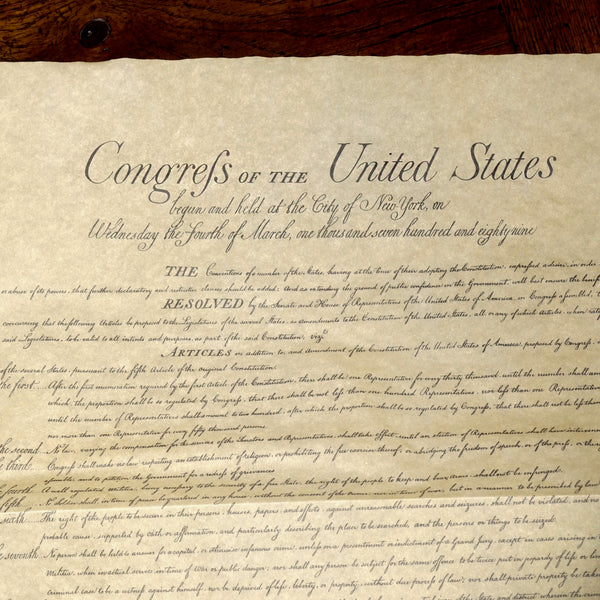 Congreſs OF THE United States
begun and held at the City of New York, on
Wednesday the Fourth of March, one thousand seven hundred and eighty nine
THE Conventions of a number of the States, having at the time of their adopting the Constitution, expressed a desire, in order
or abuse of its powers, that further declaratory and restrictive clauses should be added: And as extending the ground of public confidence in the Government, will best ensure the
RESOLVED by the Senate and House of Representatives of the United States of America, in Congress assembled,
concurring, that the following Articles be proposed to the Legislatures of the several States, as amendments to the Constitution of the United States, all or any of which Articles, when
said Legislatures, to be valid to all intents and purposes, as part of the said Constitution; vizt
ARTICLES in addition to, and amendment of the Constitution of the United States of America, proposed by Congress,
of the several States, pursuant to the fifth Article of the original Constitution.
the first.... After the first enumeration required by the first Article of the Constitution, there shall be one Representative for every thirty thousand, until the number shall
which, the proportion shall be so regulated by Congress, that there shall be not less than one hundred Representatives, nor less than one Representative
until the number of Representatives shall amount to two hundred, after which the proportion shall be so regulated by Congress, that there shall not be less
nor more than one Representative for every fifty thousand persons.
the second No law, varying the compensation for the services of the Senators and Representatives, shall take effect, until an election of Representatives shall have intervened
the third Congress shall make no law respecting an establishment of religion, or prohibiting the free exercise thereof; or abridging the freedom of speech, or of the press; or the
assemble, and to petition the Government for a redress of grievances
the fourth A well regulated militia, being necessary to the security of a free State, the right of the people to keep and bear Arms, shall not be infringed.
fifth No Soldier shall, in time of peace be quartered in any house, without the consent of the owner, nor in time of war, but in a manner to be prescribed by
sixth The right of the people to be secure in their persons, houses, papers, and effects, against unreasonable searches and seizures, shall not be violated, and no
probable cause, supported by oath or affirmation, and particularly describing the place to be searched, and the persons or things to be seized.
the seventh No person shall be held to answer for a capital, or otherwise infamous crime, unless on a presentment or indictment of a Grand Jury, except in cases arising in
Militia, when in actual service in time of War or public danger; nor shall any person be subject for the same offence to be twice put in jeopardy of life or
criminal case to be a witness against himself, nor be deprived of life, liberty, or property, without due process of law; nor shall private property be taken
State and district wherein the